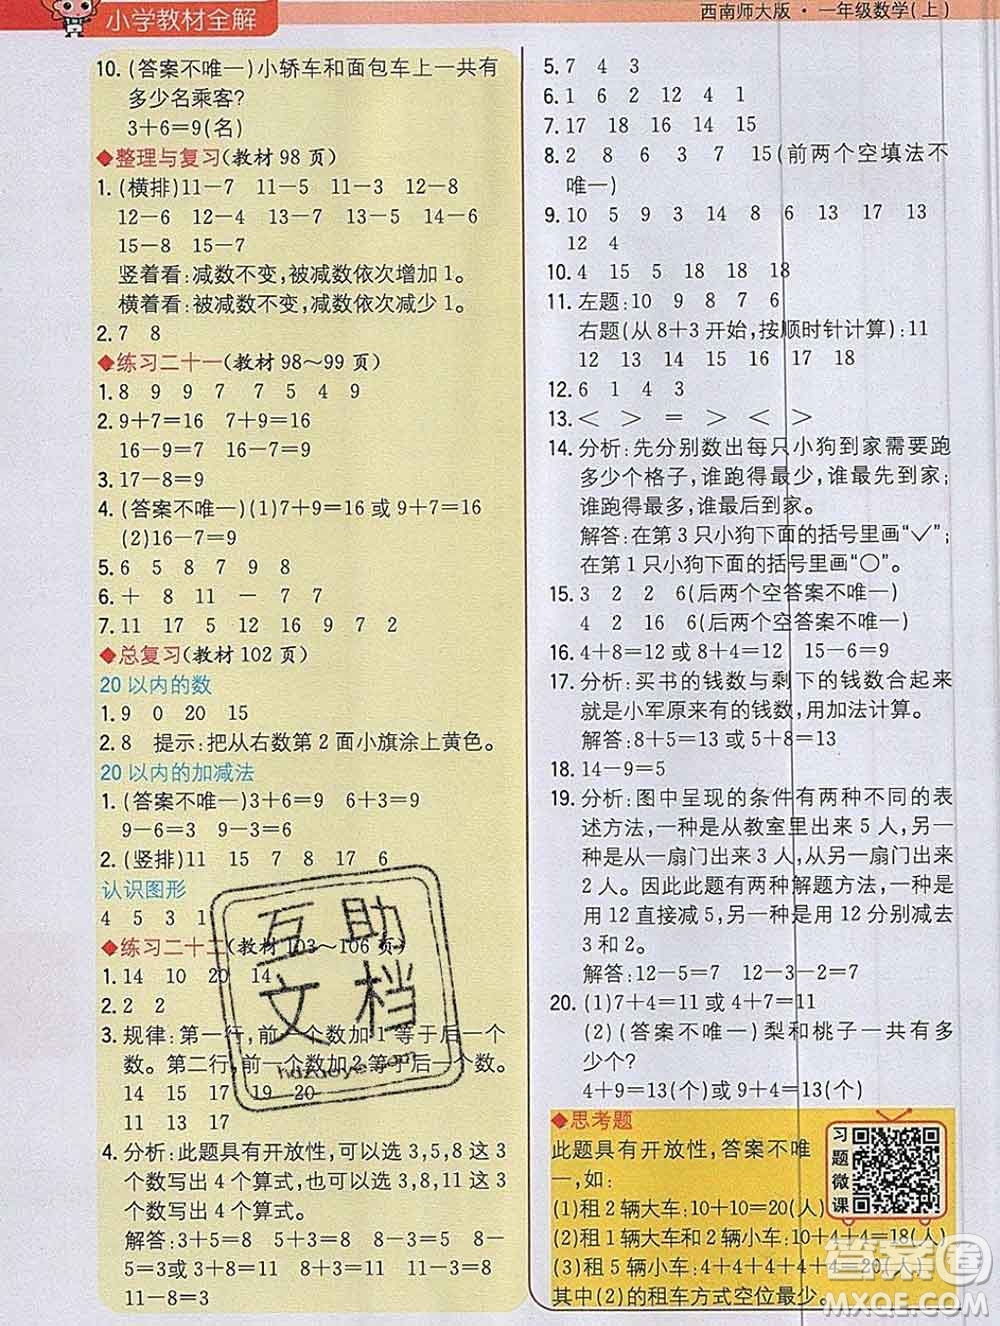 小学教材全解
西南师大版·一年级数学(上)
10.(答案不唯一)小轿车和面包车上一共有
多少名乘客?
3+6=9(名)
◆整理与复习(教材98页)
1.(横排)11-7 11-5 11-3 12-8
12-6 12-4 13-7 13-5 14-6
15-8 15-7
竖着看:减数不变,被减数依次增加1。
横着看:被减数不变,减数依次减少1。
2.7 8
◆练习二十一(教材98～99页)
1.8 9 9 7 7 5 4 9
2.9+7=16 7+9=16
16-9=7 16-7=9
3.17-8=9
4.(答案不唯一)(1)7+9=16或9+7=16
(2)16-7=9
5.6 5 8 7 9 8
6.+ 8 11 - 7 7
7.11 17 5 16 9 7 2
◆总复习(教材102页)
20以内的数
1.9 0 20 15
2.8 提示:把从右数第2面小旗涂上黄色。
20以内的加减法
1.(答案不唯一)3+6=9 6+3=9
9-6=3 9-3=6
2.(竖排)11 15 7 8 17 6
认识图形
4 5 3 1
◆练习二十二(教材103～106页)
1.14 10 20 14
2.2 2
3.规律:第一行,前一个数加1等于后一个
数。第二行,前一个数加2等于后一个数。
14 15 17 19 20
11 13 17
4.分析:此题具有开放性,可以选3,5,8这3
个数写出4个算式,也可以选3,8,11这3
个数写出4个算式。
解答:3+5=8 5+3=8 8-3=5 8-
5=3或3+8=11 8+3=11 11-3=8
11-8=3
5.7 4 3
6.1 6 2 12 4 1
7.17 18 16 14 15
8.2 8 6 3 7 15(前两个空填法不
唯一)
9.10 5 9 3 14 8 6 13 17 13
12 4
10.4 15 5 18 18 18
11.左题:10 9 8 7 6
右题(从8+3开始,按顺时针计算):11
12 13 14 15 16 17 18
12.6 1 4 3
13.< > = > < >
14.分析:先分别数出每只小狗到家需要跑
多少个格子,谁跑得最少,谁最先到家;
谁跑得最多,谁最后到家。
解答:在第3只小狗下面的括号里画“✓”;
在第1只小狗下面的括号里画“○”。
15.3 2 2 6(后两个空答案不唯一)
4 2 16 6(后两个空答案不唯一)
16.4+8=12或8+4=12 15-6=9
17.分析:买书的钱数与剩下的钱数合起来
就是小军原来有的钱数,用加法计算。
解答:8+5=13或5+8=13
18.14-9=5
19.分析:图中呈现的条件有两种不同的表
述方法,一种是从教室里出来5人,另
一种是从一扇门出来3人,从另一扇门
出来2人。因此此题有两种解题方法,一种
用12直接减5,另一种是用12连续减
3和2。
解答:12-5=7或12-3-2=7
20.(1)7+4=11或4+7=11
(2)(答案不唯一)梨和桃子一共有多
少个?
4+9=13(个)或9+4=13(个)
◆思考题
此题具有开放性,答案不唯
一,如:
(1)租2辆大车:10+10=20(人)
(2)租1辆大车和2辆小车:10+4+4=18(人)
(3)租5辆小车:4+4+4+4+4=20(人)
其中(2)的租车方式空位最少。
习题微课
互助文档
hdzuoye.com
答案圈
MXQE.COM